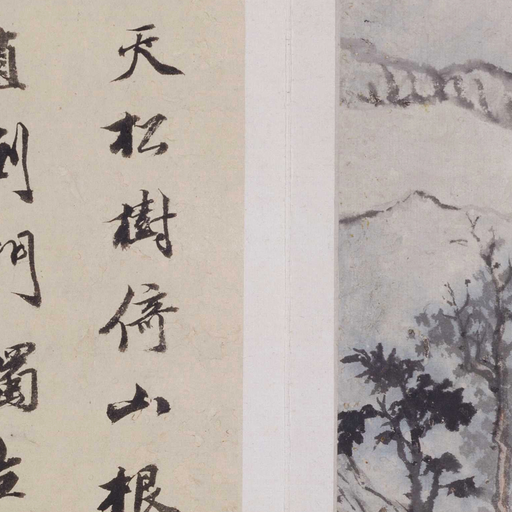 天松樹倚山根
直到門獨立